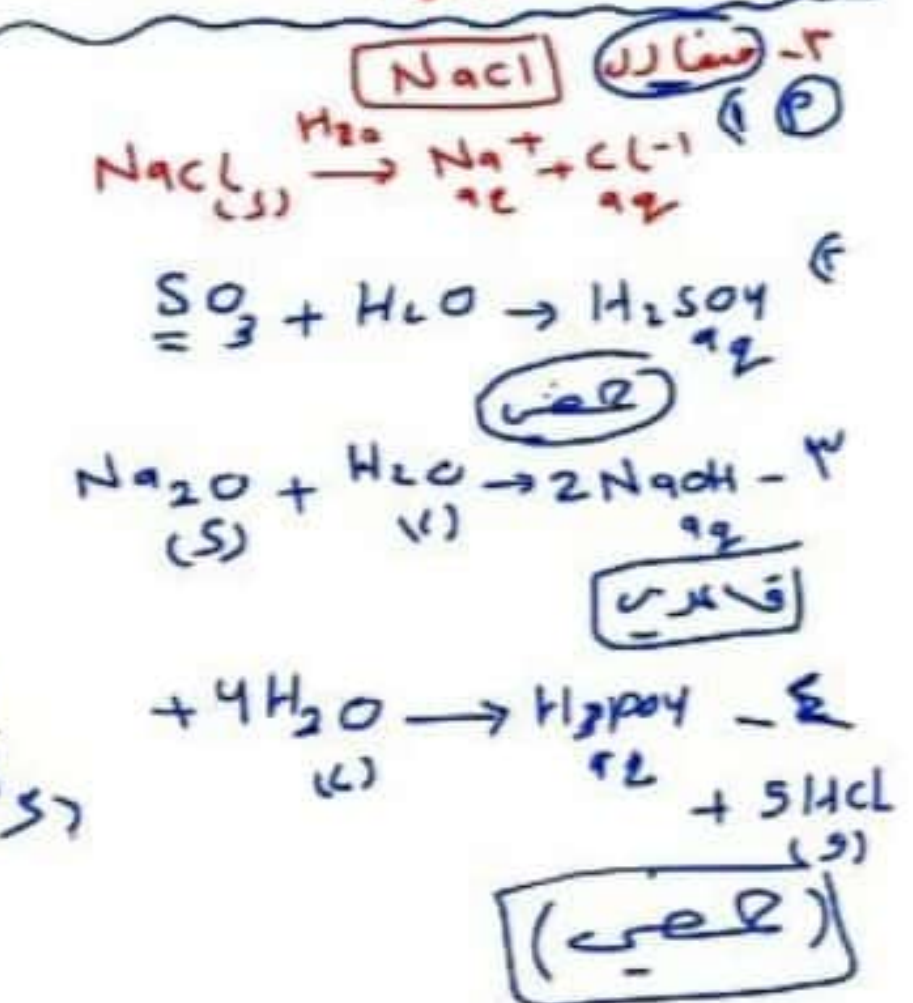 ٣- متعادل NaCl
٢ ١)
NaCl(s) H2O → Na+ aq + Cl-1 aq
٢)
SO3 + H2O → H2SO4 aq
حمضي
٣- Na2O (S) + H2O (l) → 2NaOH aq
قاعدي
٤- + 4H2O (l) → H3PO4 aq
S) + 5HCl (g)
(حمضي)